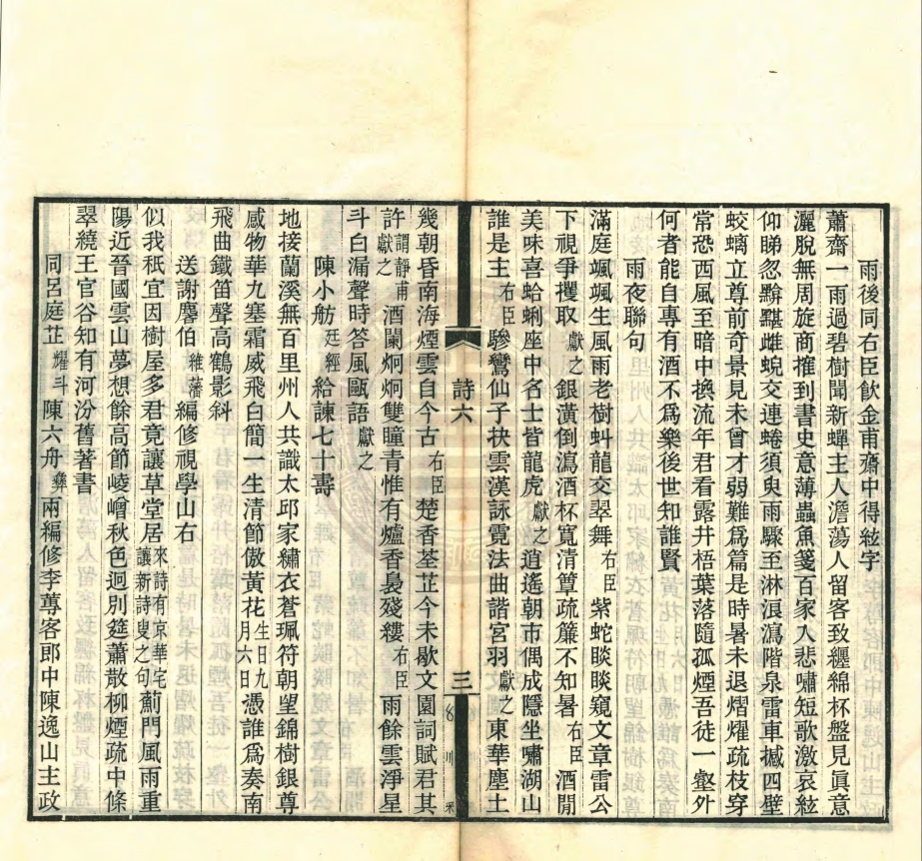 雨後同右臣飲金甫齋中得絃字
蕭齋一雨過碧樹聞新蟬主人澹蕩人留客致纏綿杯盤見眞意
灑脫無周旋商搉到書史意薄蟲魚箋百家入悲嘯短歌激哀絃
仰睇忽黭黮雌蜺交連蜷須臾雨驟至淋浪瀉階泉雷車撼四壁
蛟螭立尊前奇景見未曾才弱難爲篇是時暑未退熠燿疏枝穿
常恐西風至暗中換流年君看露井梧葉落隨孤煙吾徒一壑外
何者能自專有酒不爲樂後世知誰賢
雨夜聯句
滿庭颯颯生風雨老樹蚪龍交翠舞右臣紫蛇睒睒窺文章雷公
下視爭攫取獻之銀潢倒瀉酒杯寬清簟疏簾不知暑右臣酒閒
美味喜蛤蜊座中名士皆龍虎獻之逍遙朝市偶成隱坐嘯湖山
誰是主右臣驂鸞仙子抉雲漢詠霓法曲諧宮羽獻之東華塵土
幾朝昏南海煙雲自今古右臣楚香荃芷今未歇文園詞賦君其
許謂靜甫獻之酒闌炯炯雙瞳青惟有爐香裊殘縷右臣雨餘雲淨星
斗白漏聲時答風甌語獻之
陳小舫廷經給諫七十壽
地接蘭溪無百里州人共識太邱家繡衣蒼珮符朝望錦樹銀尊
感物華九塞霜威飛白簡一生清節傲黃花生日九月六日憑誰爲奏南
飛曲鐵笛聲高鶴影斜
送謝麐伯維藩編修視學山右
似我秖宜因樹屋多君竟讓草堂居來詩有京華宅讓新詩叟之句薊門風雨重
陽近晉國雲山夢想餘高節崚嶒秋色迥別筵蕭散柳煙疏中條
翠繞王官谷知有河汾舊著書
同呂庭芷耀斗陳六舟彝兩編修李蓴客郎中陳逸山主政
詩六
三